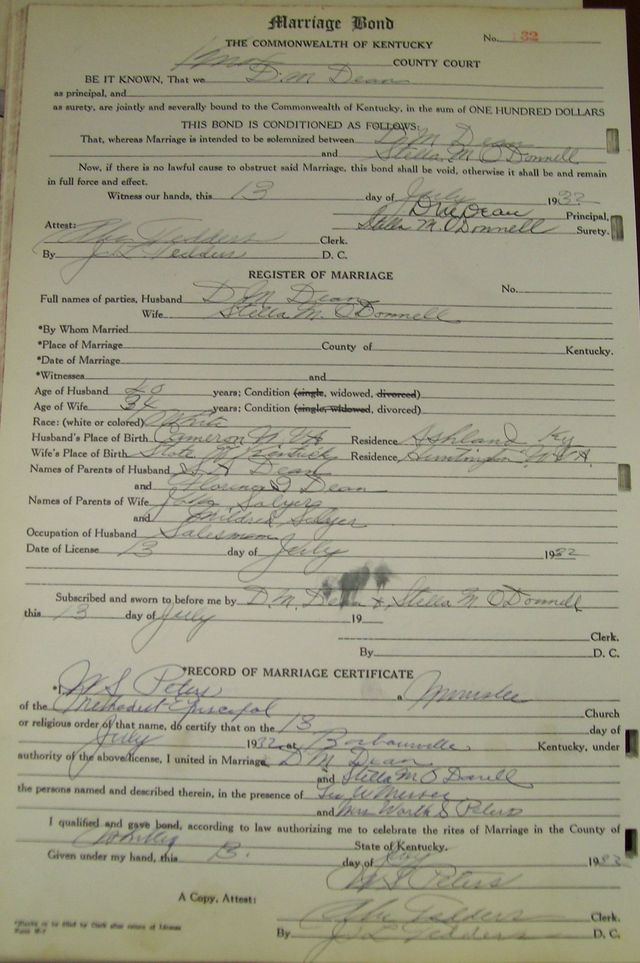 Marriage Bond
No. 32
THE COMMONWEALTH OF KENTUCKY
Knox COUNTY COURT
BE IT KNOWN, That we D. M. Dean
as principal, and
as surety, are jointly and severally bound to the Commonwealth of Kentucky, in the sum of ONE HUNDRED DOLLARS
THIS BOND IS CONDITIONED AS FOLLOWS:
That, whereas Marriage is intended to be solemnized between D. M. Dean
and Stella M. O'Donnell
Now, if there is no lawful cause to obstruct said Marriage, this bond shall be void, otherwise it shall be and remain
in full force and effect.
Witness our hands, this 13 day of July 1932
D M Dean Principal,
Stella M. O'Donnell Surety.
Attest:
Tedders Clerk.
By J. L. Tedders D. C.
REGISTER OF MARRIAGE
No.
Full names of parties, Husband D. M. Dean
Wife Stella M. O'Donnell
*By Whom Married
*Place of Marriage County of Kentucky.
*Date of Marriage
*Witnesses and
Age of Husband 40 years; Condition (single, widowed, divorced)
Age of Wife 34 years; Condition (single, widowed, divorced)
Race: (white or colored) White
Husband's Place of Birth Cameron W. VA Residence Ashland Ky
Wife's Place of Birth State of Kentucky Residence, Huntington W. VA.
Names of Parents of Husband Dean
and Florence Dean
Names of Parents of Wife John Salyers
and Mildred Salyer
Occupation of Husband Salesman
Date of License 13 day of July 1932
Subscribed and sworn to before me by D. M. Dean & Stella M. O'Donnell
this 13 day of July 19
Clerk.
By D. C.
*RECORD OF MARRIAGE CERTIFICATE
*I, W S Peters a Minister
of the Methodist Episcopal Church
or religious order of that name, do certify that on the 13 day of
July 1932, at Barbourville, Kentucky, under
authority of the above license, I united in Marriage D M Dean
and Stella M O'Donell
the persons named and described therein, in the presence of W Mercer
and Mrs Worth S Peters
I qualified and gave bond, according to law authorizing me to celebrate the rites of Marriage in the County of
Whitley State of Kentucky.
Given under my hand, this 13. day of July 1932
W S Peters
A Copy, Attest:
Tedders Clerk.
By J. L. Tedders D. C.
*Blanks to be filled by Clerk after return of License